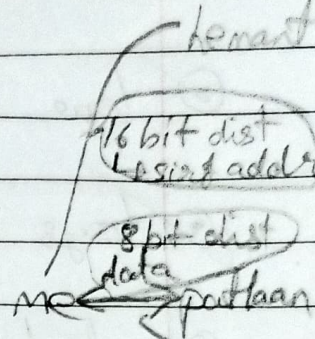 hemant
16 bit dist
using addr
8 bit dist
data
me